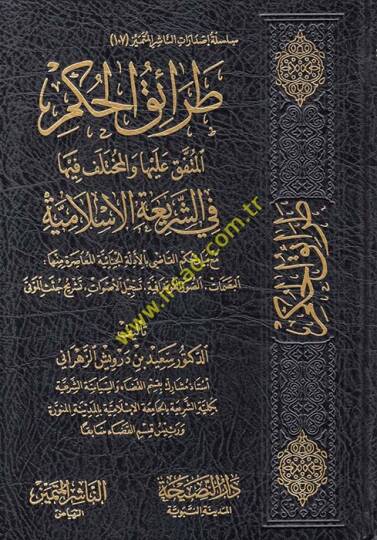 سلسلة إصدارات الناشر المتميز (١٠٧)
طرائق الحكم
المتفق عليها والمختلف فيها
في الشريعة الإسلامية
مع بيان حكم القاضي بالأدلة الجنائية المعاصرة منها:
البصمات، الصور الفوتوغرافية، تسجيل الأصوات، تشريح جثث الموتى
تأليف
الدكتور سعيد بن درويش الزهراني
أستاذ مشارك بقسم القضاء والسياسة الشرعية
بكلية الشريعة بالجامعة الإسلامية بالمدينة المنورة
ورئيس قسم القضاء سابقا
دار النصيحة
المدينة النبوية
الناشر المتميز
الرياض
طرائق الحكم
www.irfad.com.tr